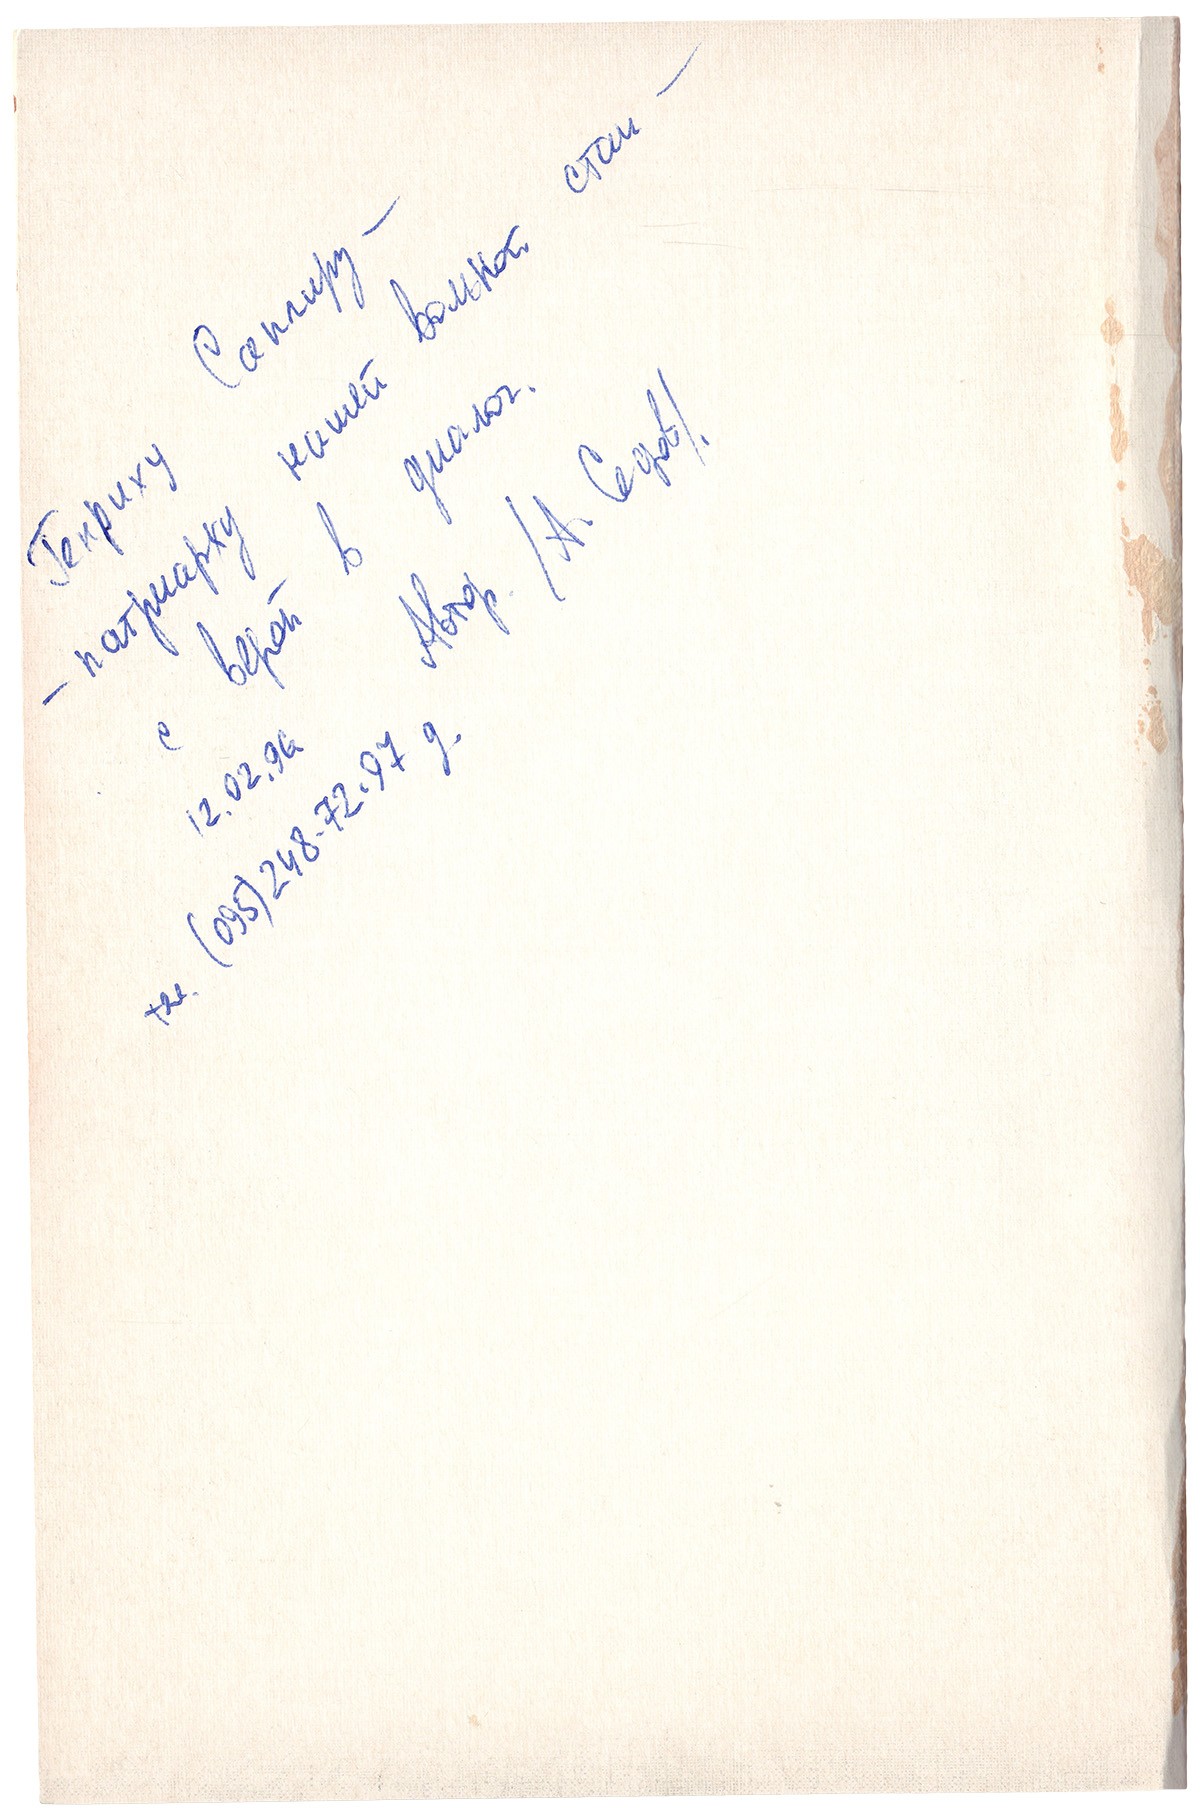 Генриху Сапгиру —
— патриарху нашей вольной стаи —
с верой в диалог.
Автор. /А. Седов/.
12.02.96
тел. (095) 248-72-97 д.